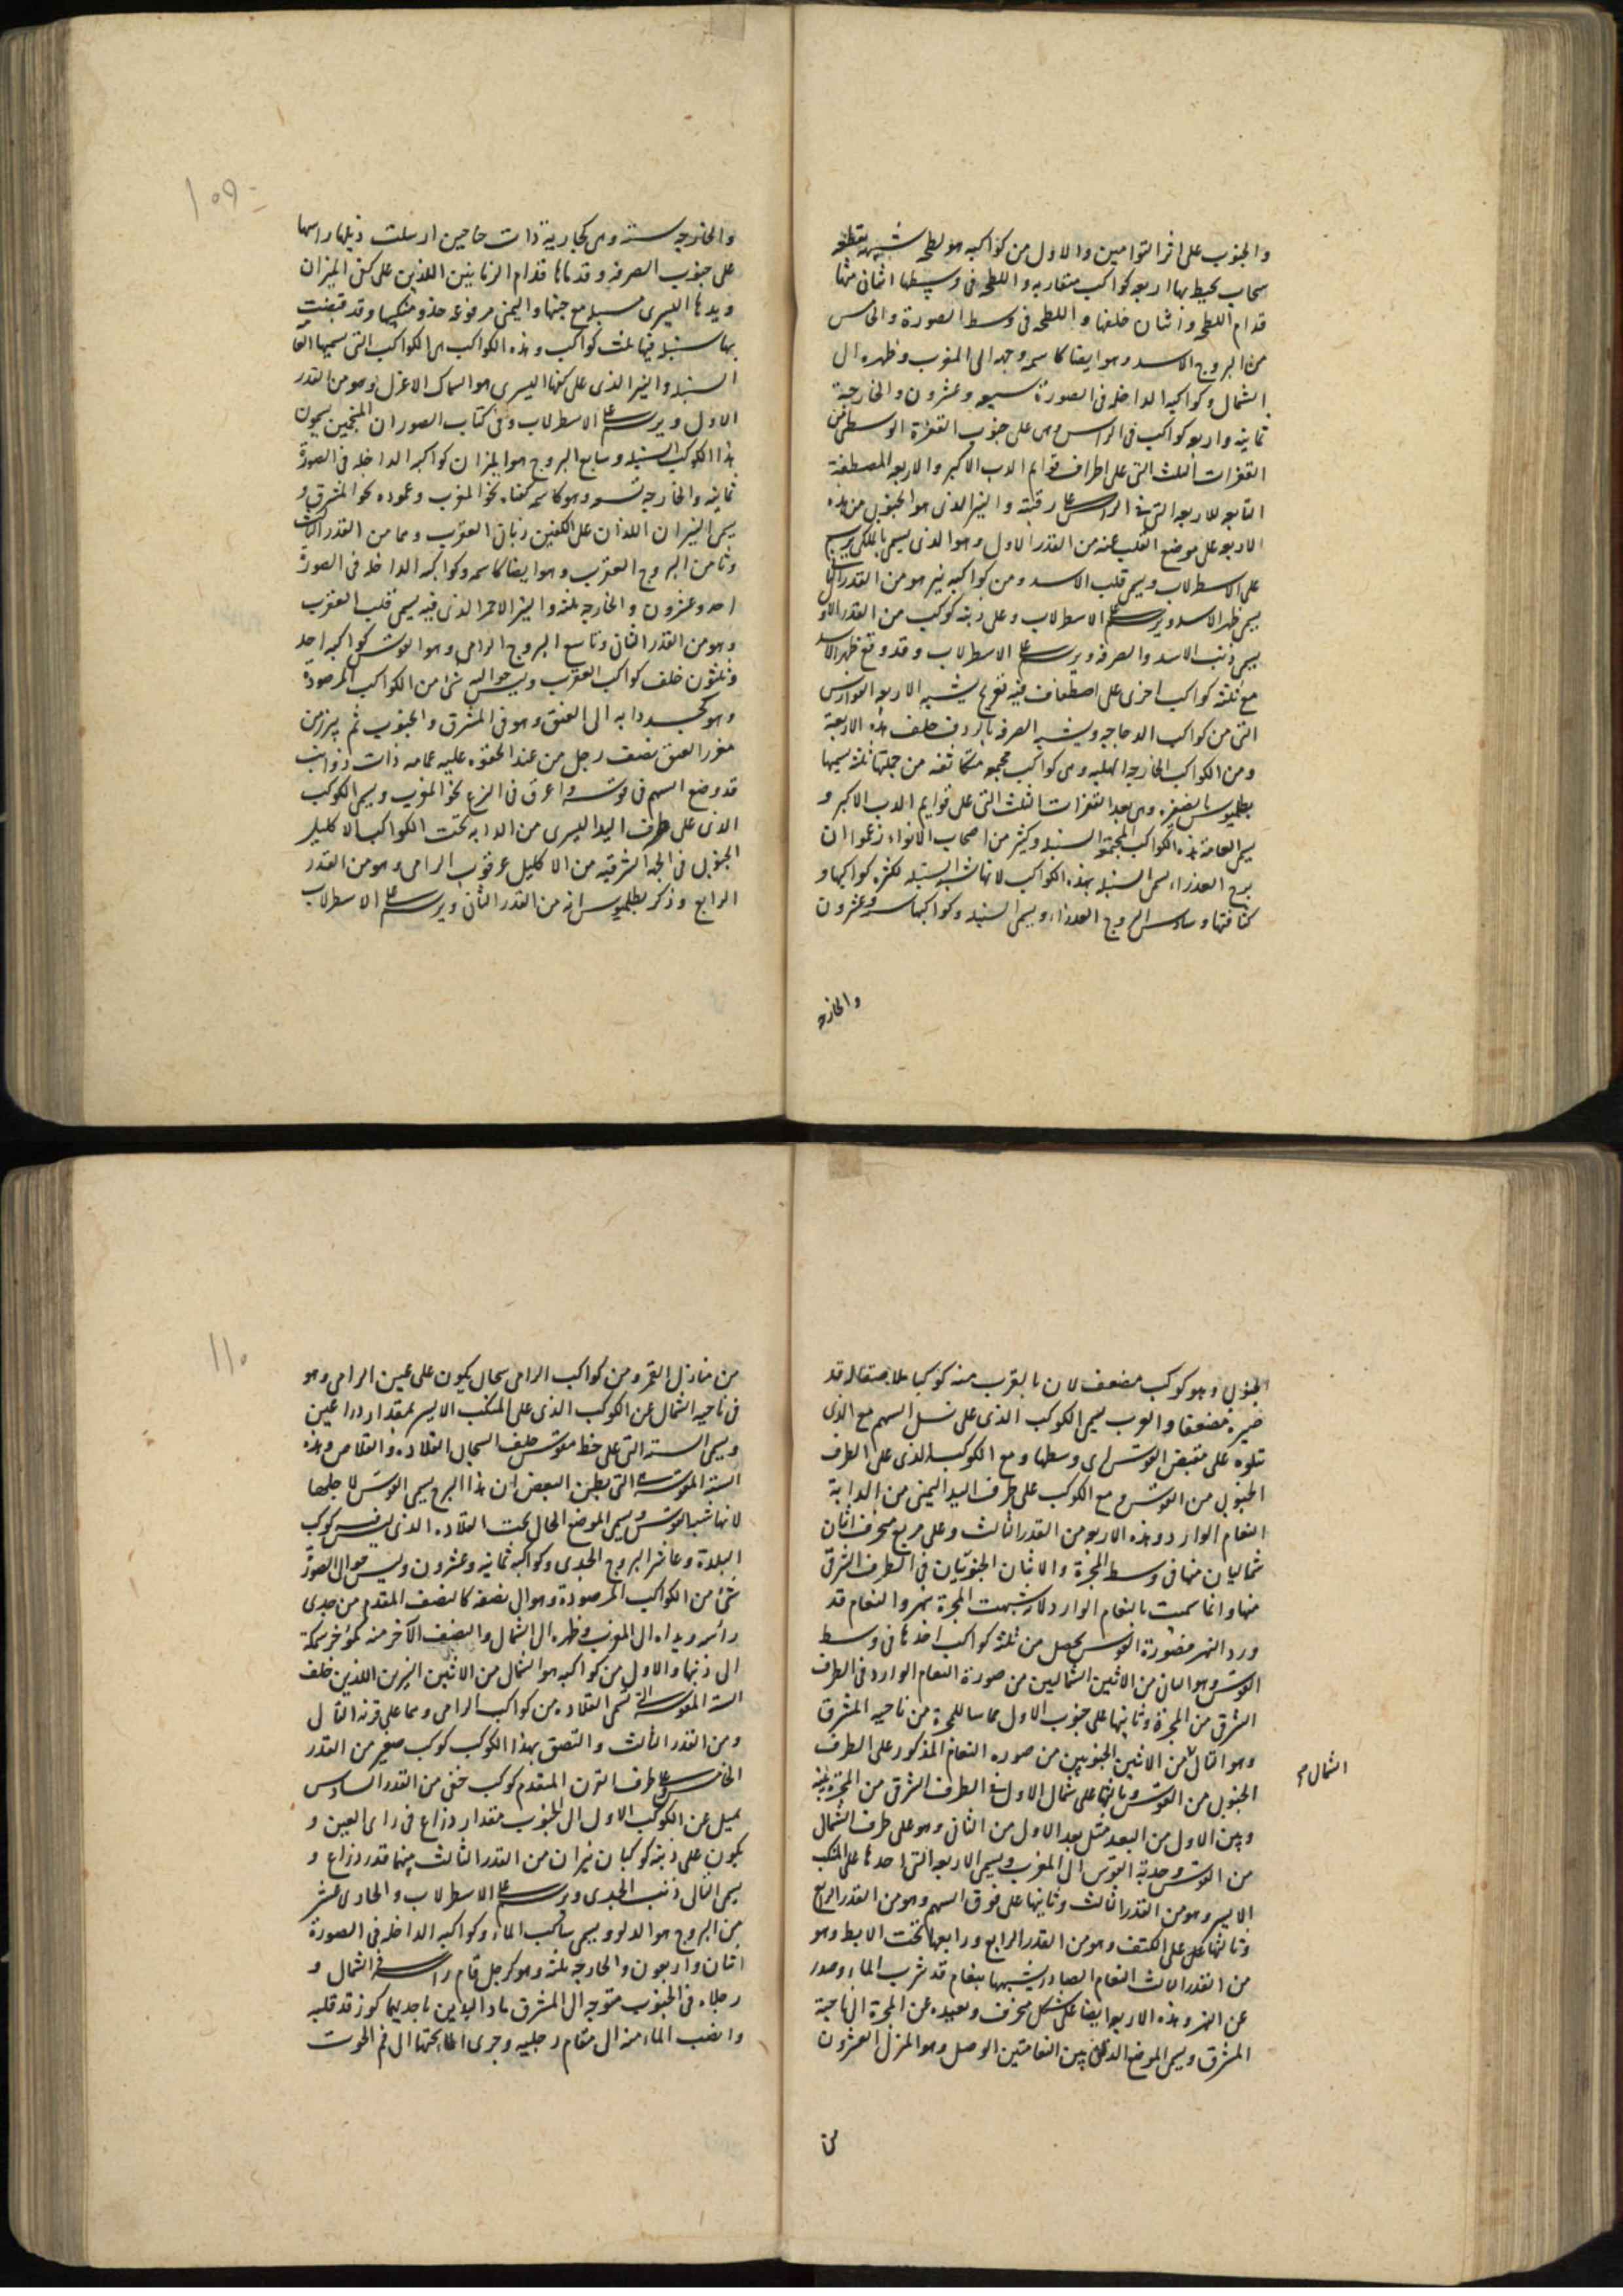 والجنوب على اثر التوامين والاول من كواكبه هو لطخه شبيهه بقطعه
سحاب يحيط بها اربعه كواكب متقاربه واللطخه فى وسطها اثنان منها
قدام اللطخه واثنان خلفها واللطخه فى وسط الصورة والخامس
من البروج الاسد وهو ايضا كاسمه وجهه الى المغرب وظهره الى
الشمال وكواكبه الداخله فى الصورة سبعه وعشرون والخارجة
ثمانيه واربعه كواكب فى الراس وهى على جنوب القفزة الوسطى من
القفزات الثلث التى على اطراف قوايم الدب الاكبر والاربعه المصطفة
التابعه للاربعه التى فى الراس على رقبته والنير الذى هو الجنوبى من هذه
الاربعه على موضع القلب عنه من القدر الاول وهو الذى يسمى بالملكى يرسم
على الاسطرلاب ويسمى قلب الاسد ومن كواكبه نير هو من القدر الثانى
يسمى ظهر الاسد ويرسم على الاسطرلاب وعلى ذنبه كوكب من القدر الاول
يسمى ذنب الاسد والصرفه ويرسم على الاسطرلاب وقد وقع ظهر الاسد
مع ثلثة كواكب اخرى على اصطفاف فيه تعرج يشبه الاربعه الفوارس
التى من كواكب الدجاجه ويشبه الصرفه بالردف خلف هذه الاربعة
ومن الكواكب الخارجه الهلبه وهى كواكب مجتمعه متكاثفه من جملتها ثلثة يسميها
بطلميوس الضفيره وهى بعد القفزات الثلث التى على قوايم الدب الاكبر و
يسمى العامة هذه الكواكب المجتمعه السنبله وكثير من اصحاب الانواء زعموا ان
برج العذراء سمى السنبله بهذه الكواكب لانها تشبه السنبله لكثره كواكبها و
كثافتها وسادس البروج العذراء ويسمى السنبله وكواكبها سته وعشرون
والخارجه
١٠٩
والخارجه سته وهى كجارية ذات جناحين ارسلت ذيلها وراسها
على جنوب الصرفه وقدماها قدام الزبانيين اللذين على كفتى الميزان
ويدها اليسرى مسبله مع جنبها واليمنى مرفوعه حذو منكبها وقد قبضت
بها سنبله فيها ثلث كواكب وهذه الكواكب هى الكواكب التى يسميها العامه
السنبله والنير الذى على كفها اليسرى هو السماك الاعزل وهو من القدر
الاول ويرسم على الاسطرلاب وفى كتاب الصور ان المنجمين يسمون
هذا الكوكب السنبله وسابع البروج هو الميزان كواكبه الداخله فى الصورة
ثمانيه والخارجه تسعه وهو كاسمه كفتاه نحو المغرب وعموده نحو المشرق و
يسمى النيران اللذان على الكفتين زبانى العقرب وهما من القدر الثالث
وثامن البروج العقرب وهو ايضا كاسمه وكواكبه الداخله فى الصورة
احد وعشرون والخارجه ثلثه والنير الاحمر الذى فيه يسمى قلب العقرب
وهو من القدر الثانى وتاسع البروج الرامى وهو القوس كواكبه احد
وثلثون خلف كواكب العقرب وليس حواليه شئ من الكواكب المرصودة
وهو كجسد دابه الى العنق وهو فى المشرق والجنوب ثم يبرز من
مغرز العنق نصف رجل من عند الحقوه عليه عمامه ذات ذوايب
قد وضع السهم فى قوسه واغرق فى النزع نحو المغرب ويسمى الكوكب
الذى على طرف اليد اليسرى من الدابه تحت الكواكب الاكليل
الجنوبى فى الجهة الشرقيه من الاكليل عرقوب الرامى وهو من القدر
الرابع وذكر بطلميوس انه من القدر الثانى ويرسم على الاسطرلاب
الجنوبى وهو كوكب مضعف لان بالقرب منه كوكبا ملاصقا له قد
صيره مضعفا والعرب يسمى الكوكب الذى على نصل السهم مع الذى
تتلوه على مقبض القوس اى وسطها ومع الكوكب الذى على الطرف
الجنوبى من القوس ومع الكوكب على طرف اليد اليمنى من الدابة
النعام الوارد وهذه الاربعه من القدر الثالث وعلى مربع منحرف اثنان
شماليان منها فى وسط المجرة والاثنان الجنوبيان فى الطرف الشرقى
منها وانما سميت بالنعام الوارد لانه شبهت المجرة بنهر والنعام قد
ورد النهر فصورة القوس يحصل من ثلثة كواكب احدها فى وسط
القوس وهو الثانى من الاثنين الشماليين من صورة النعام الوارد فى الطرف
الشرقى من المجرة وثانيها على جنوب الاول مماسا للمجرة من ناحيه المشرق
وهو التالى من الاثنين الجنوبيين من صوره النعام المذكور على الطرف
الشمال
الجنوبى من القوس وثالثها على شمال الاول فى الطرف الشرقى من المجرة بينه
وبين الاول من البعد مثل بعد الاول من الثانى وهو على طرف الشمالى
من القوس وحدبة القوس الى المغرب ويسمى الاربعه التى احدها على المنكب
الايسر وهو من القدر الثالث وثانيها على فوق السهم وهو من القدر الرابع
وثالثها على الكتف وهو من القدر الرابع ورابعها تحت الابط وهو
من القدر الثالث النعام الصادر يشبهها بنعام قد شرب الماء وصدر
عن النهر وهذه الاربعه ايضا على شكل منحرف وبعيده عن المجرة الى ناحية
المشرق ويسمى الموضع الذى بين النعامتين الوصل وهو المنزل العشرون
من
١١٠
من منازل القمر ومن كواكب الرامى سحابى يكون على عين الرامى وهو
فى ناحيه الشمال عن الكوكب الذى على المنكب الايسر بمقدار ذراعين
ويسمى السته التى على خط مقوس خلف السحابى القلاده والقلاص وهذه
الستة المقوسة التى يظن البعض ان هذا البرج يسمى القوس لاجلها
لانها شبه القوس ويسمى الموضع الخالى تحت القلاده الذى ليس فيه كوكب
البلدة وعاشر البروج الجدى وكواكبه ثمانيه وعشرون وليس حوالى الصورة
شئ من الكواكب المرصودة وهو الى نصفه كالنصف المقدم من جدى
راسه ويداه الى المغرب وظهره الى الشمال والنصف الآخر منه كمؤخر سمكة
الى ذنبها والاول من كواكبه هو الشمالى من الاثنين النيرين اللذين خلف
السته المقوسه التى تسمى القلاده من كواكب الرامى وهما على قرنه التالى
ومن القدر الثالث والتصق بهذا الكوكب كوكب صغير من القدر
الخامس وعلى طرف القرن المقدم كوكب خفى من القدر السادس
يميل عن الكوكب الاول الى الجنوب مقدار ذراع فى راى العين و
يكون على ذنبه كوكبان نيران من القدر الثالث بينهما قدر ذراع و
يسمى التالى ذنب الجدى ويرسم على الاسطرلاب والحادى عشر
من البروج هو الدلو ويسمى ساكب الماء وكواكبه الداخله فى الصورة
اثنان واربعون والخارجه ثلثه وهو كرجل قام راسه فى الشمال و
رجلاه فى الجنوب متوجه الى المشرق ماد اليدين باحديهما كوز قد قلبه
وانصب الماء منه الى مقام رجليه وجرى الماء تحتها الى فم الحوت